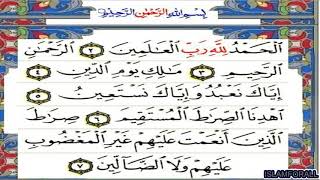 بِسْمِ اللهِ الرَّحْمٰنِ الرَّحِيْمِ
اَلْحَمْدُ لِلّٰهِ رَبِّ الْعٰلَمِيْنَ ٢ الرَّحْمٰنِ
الرَّحِيْمِ ٣ مٰلِكِ يَوْمِ الدِّيْنِ ٤
اِيَّاكَ نَعْبُدُ وَ اِيَّاكَ نَسْتَعِيْنُ ٥
اِهْدِنَا الصِّرَاطَ الْمُسْتَقِيْمَ ٦ صِرَاطَ
الَّذِيْنَ اَنْعَمْتَ عَلَيْهِمْ غَيْرِ الْمَغْضُوْبِ
عَلَيْهِمْ وَلَا الضَّآلِّيْنَ ٧
ISLAMFORALL